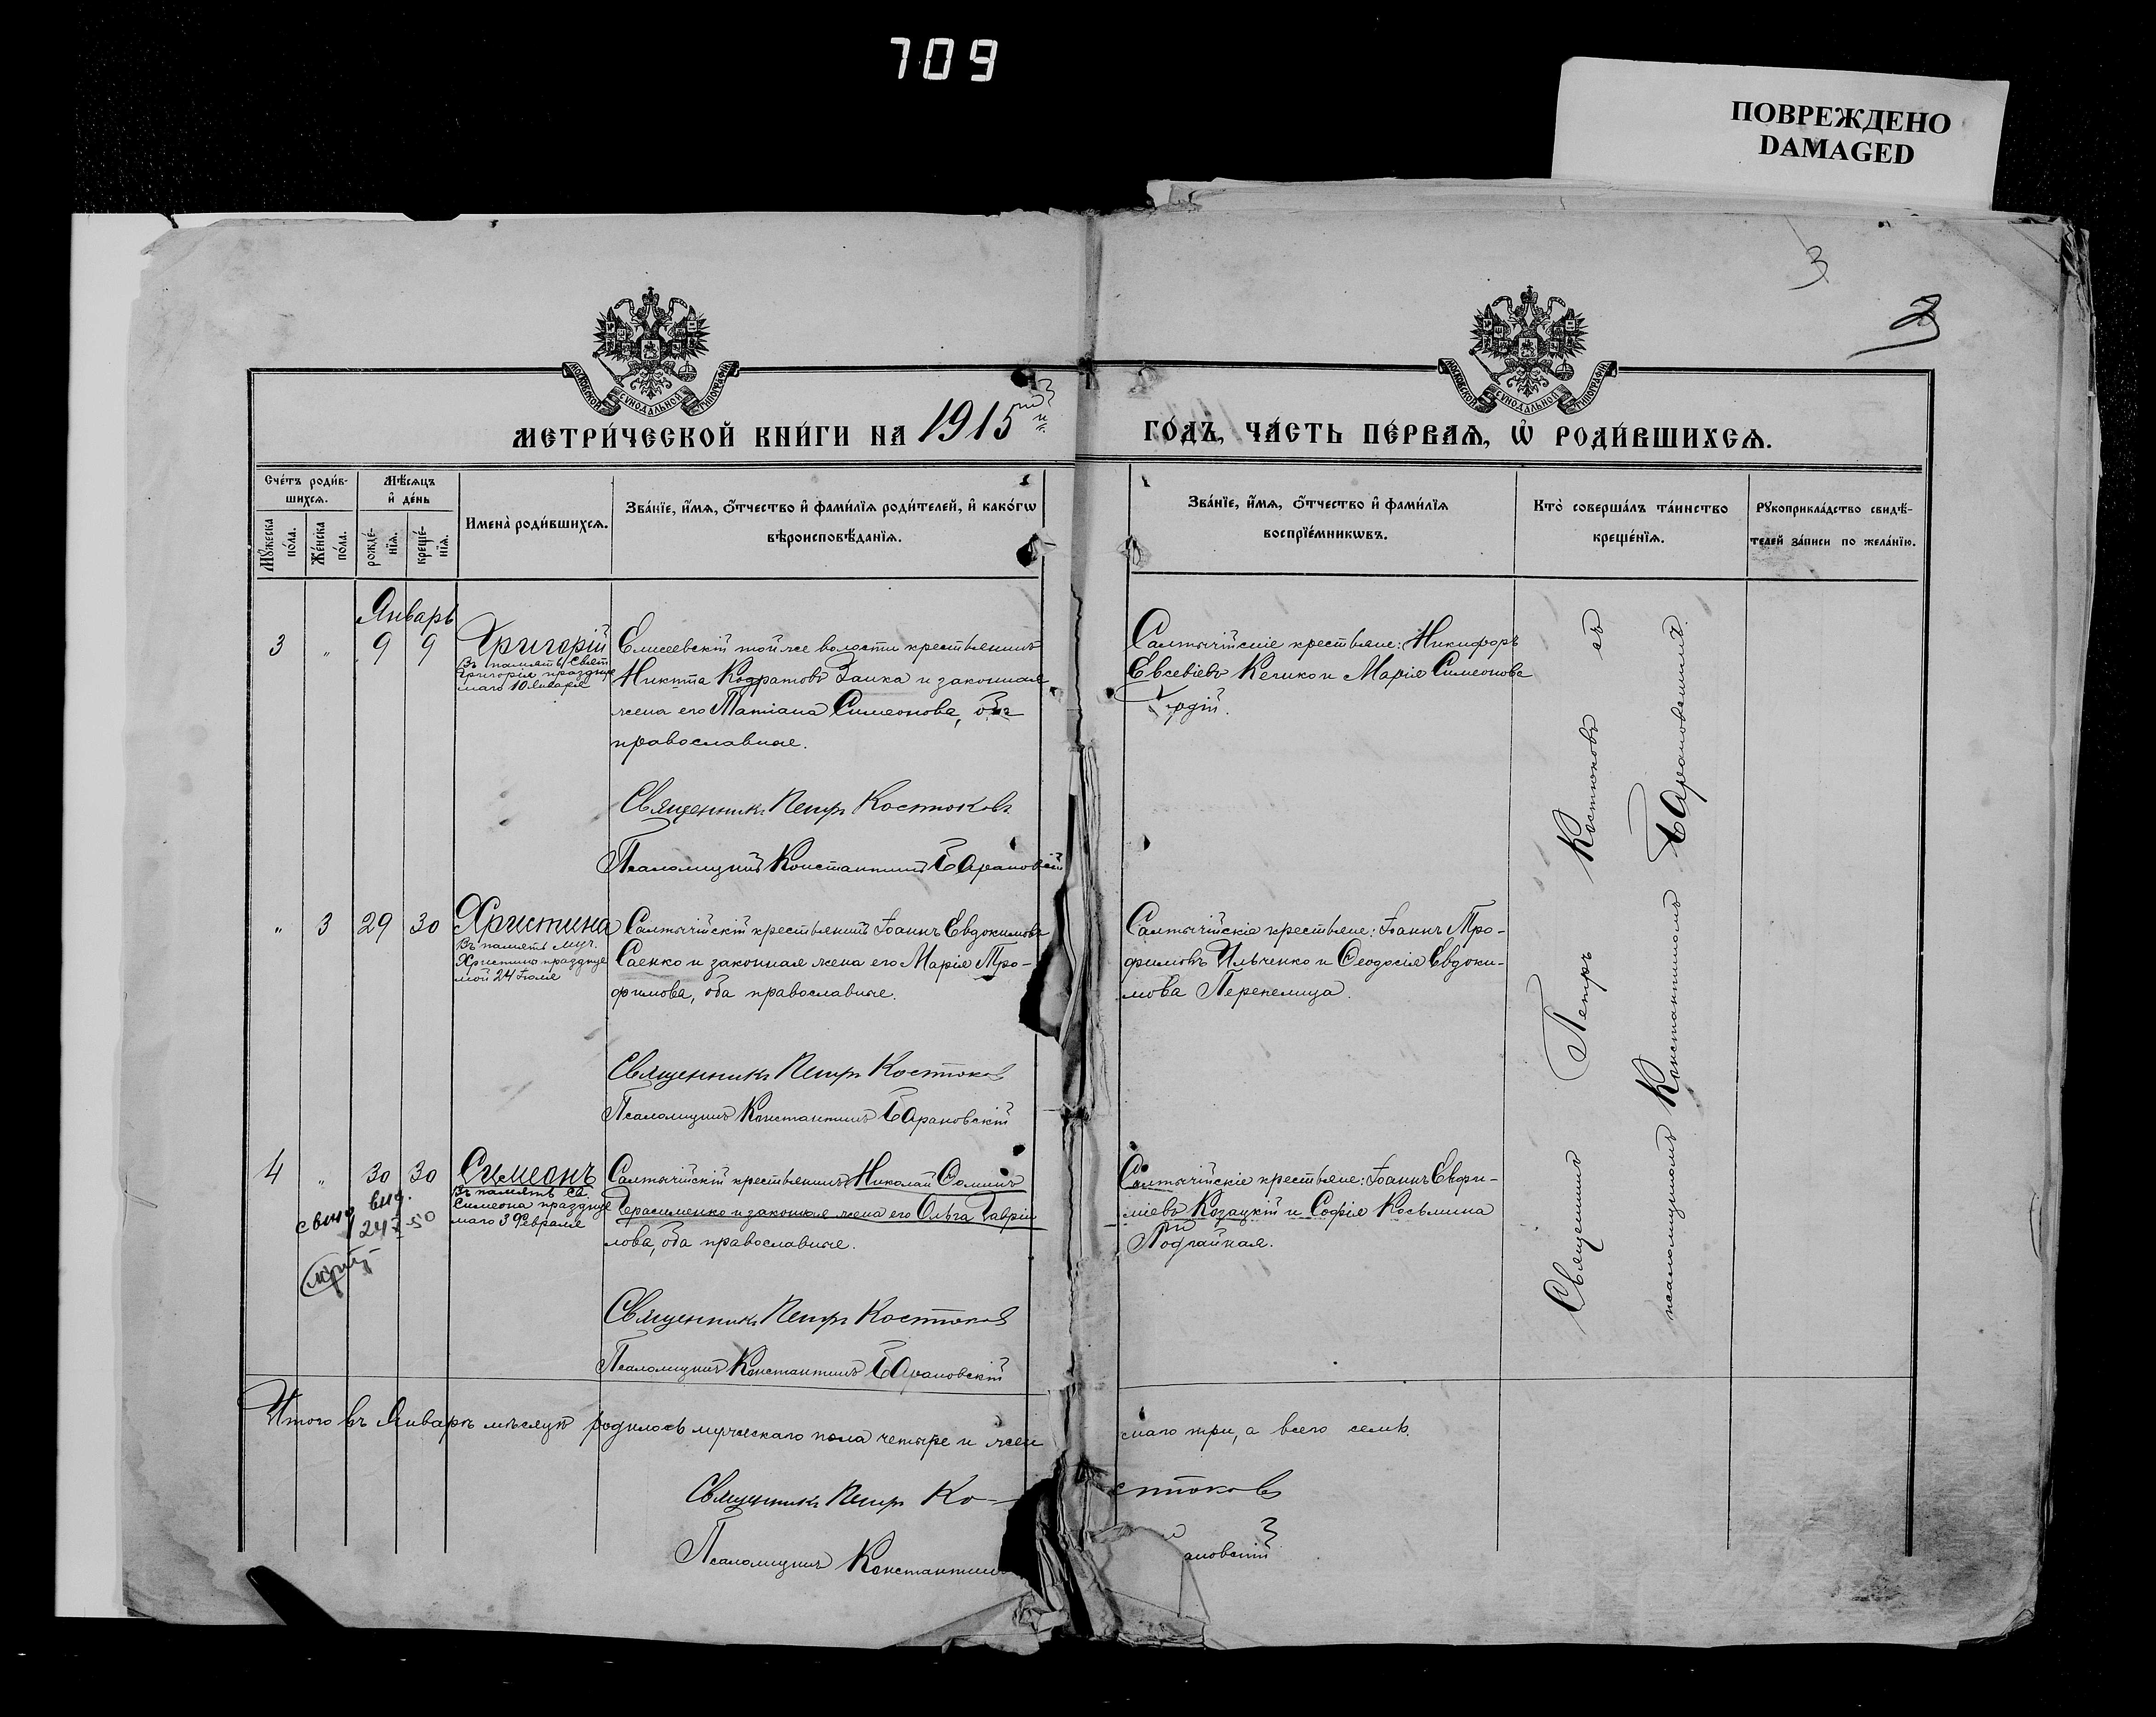 709
ПОВРЕЖДЕНО
DAMAGED
3
МОСКОВСКОЙ СѴНОДАЛЬНОЙ ТИПОГРАФІИ
МОСКОВСКОЙ СѴНОДАЛЬНОЙ ТИПОГРАФІИ
МЕТРИ́ЧЕСКОЙ КНИ́ГИ НА 1915 ГО́ДЪ, ЧА́СТЬ ПЕ́РВАѦ, Ѡ҆ РОДИ́ВШИХСѦ.
Сче́тъ роди́в-
шихсѧ.
Мꙋ́жеска
по́ла.
Же́нска
по́ла.
Мѣ́сѧцъ
и҆ де́нь
рожде́-
нїѧ.
креще́-
нїѧ.
Имена̀ роди́вшихсѧ.
Зва́нїе, и҆́мѧ, ѻ҆́тчество и҆ фами́лїѧ роди́телей, и҆ како́гѡ
вѣроисповѣ́данїѧ.
Зва́нїе, и҆́мѧ, ѻ҆́тчество и҆ фами́лїѧ
воспрїе́мникѡвъ.
Кто̀ соверша́лъ та́инство
креще́нїѧ.
Рꙋкоприкла́дство свидѣ́-
телей за́писи по жела́нїю.
Январь
3 " 9 9 Григорій
Въ память Свят
Григорія празднуе
маго 10 Января
Елисеевскій той же волости крестьянинъ
Никита Кодратовъ Заика и законная
жена его Татіана Симеонова, оба
православные.
Священникъ Петръ Костюковъ
Псаломщикъ Константинъ Барановскій
Салтычійскіе крестьяне: Никифоръ
Евсевіевъ Келико и Марія Симеонова
" 3 29 30 Христина
Въ память муч.
Христины празднуе
мой 24 Іюля
Салтычійскій крестьянинъ Іоаннъ Евдокимовъ
Саенко и законная жена его Марія Тро-
фимова, оба православные.
Священникъ Петръ Костюковъ
Псаломщикъ Константинъ Барановскій
Салтычійскіе крестьяне: Іоаннъ Тро-
фимовъ Ильченко и Ѳеодосія Евдоки-
мова Перепелица.
4 " 30 30 Симеонъ
Въ память Св.
Симеона празднуе
маго 3 Февраля
выд.
24/I-50
Салтычійскій крестьянинъ Николай Соминъ
Герасименко и законная жена его Ольга Гавріи
лова, оба православные.
Священникъ Петръ Костюковъ
Псаломщикъ Константинъ Барановскій
Салтычійскіе крестьяне: Іоаннъ Евфи-
міевъ Козацкій и Софія Косьмина
Подгайная.
Священникъ Петръ Костюковъ съ
псаломщикомъ Константиномъ Барановскимъ.
Итого въ Январѣ мѣсяцѣ родилось мужескаго пола четыре и жен
скаго три, а всего семь.
Священникъ Петръ Ко-стюковъ
Псаломщикъ Константинъ
ановскій